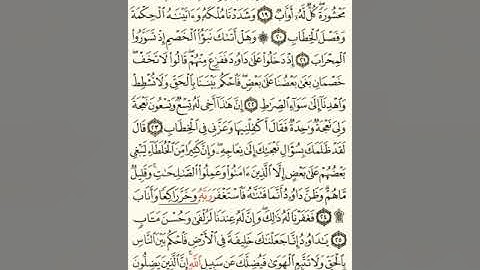 مَحْشُورَةً كُلٌّ لَّهُۥٓ أَوَّابٌ ١٩ وَشَدَدْنَا مُلْكَهُۥ وَءَاتَيْنَٰهُ ٱلْحِكْمَةَ
وَفَصْلَ ٱلْخِطَابِ ٢٠ ۞ وَهَلْ أَتَىٰكَ نَبَؤُا۟ ٱلْخَصْمِ إِذْ تَسَوَّرُوا۟
ٱلْمِحْرَابَ ٢١ إِذْ دَخَلُوا۟ عَلَىٰ دَاوُۥدَ فَفَزِعَ مِنْهُمْ قَالُوا۟ لَا تَخَفْ
خَصْمَانِ بَغَىٰ بَعْضُنَا عَلَىٰ بَعْضٍ فَٱحْكُم بَيْنَنَا بِٱلْحَقِّ وَلَا تُشْطِطْ
وَٱهْدِنَآ إِلَىٰ سَوَآءِ ٱلصِّرَٰطِ ٢٢ إِنَّ هَٰذَآ أَخِى لَهُۥ تِسْعٌ وَتِسْعُونَ نَعْجَةً
وَلِىَ نَعْجَةٌ وَٰحِدَةٌ فَقَالَ أَكْفِلْنِيهَا وَعَزَّنِى فِى ٱلْخِطَابِ ٢٣ قَالَ
لَقَدْ ظَلَمَكَ بِسُؤَالِ نَعْجَتِكَ إِلَىٰ نِعَاجِهِۦ وَإِنَّ كَثِيرًا مِّنَ ٱلْخُلَطَآءِ لَيَبْغِى
بَعْضُهُمْ عَلَىٰ بَعْضٍ إِلَّا ٱلَّذِينَ ءَامَنُوا۟ وَعَمِلُوا۟ ٱلصَّٰلِحَٰتِ وَقَلِيلٌ
مَّا هُمْ وَظَنَّ دَاوُۥدُ أَنَّمَا فَتَنَّٰهُ فَٱسْتَغْفَرَ رَبَّهُۥ وَخَرَّ رَاكِعًا وَأَنَابَ
۩ ٢٤ فَغَفَرْنَا لَهُۥ ذَٰلِكَ وَإِنَّ لَهُۥ عِندَنَا لَزُلْفَىٰ وَحُسْنَ مَـَٔابٍ
٢٥ يَٰدَاوُۥدُ إِنَّا جَعَلْنَٰكَ خَلِيفَةً فِى ٱلْأَرْضِ فَٱحْكُم بَيْنَ ٱلنَّاسِ
بِٱلْحَقِّ وَلَا تَتَّبِعِ ٱلْهَوَىٰ فَيُضِلَّكَ عَن سَبِيلِ ٱللَّهِ إِنَّ ٱلَّذِينَ يَضِلُّونَ